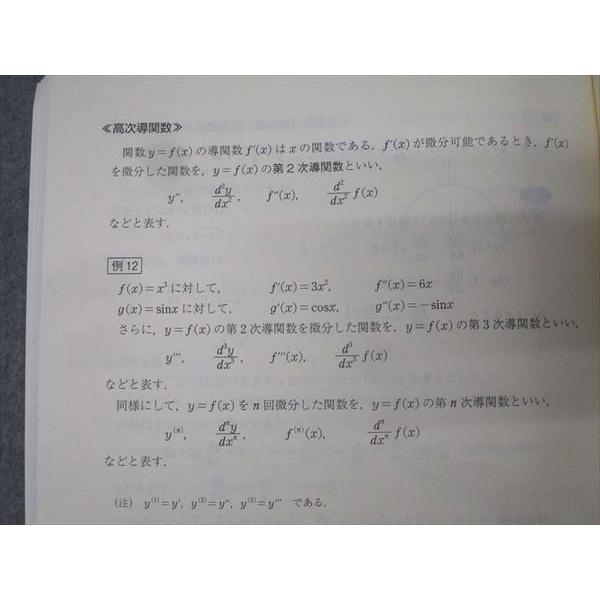 ≪高次導関数≫
関数 y=f(x) の導関数 f′(x) は x の関数である．f′(x) が微分可能であるとき，f′(x)
を微分した関数を，y=f(x) の第2次導関数といい，
y″, d²y/dx², f″(x), d²/dx² f(x)
などと表す．
例12
f(x)=x³ に対して， f′(x)=3x², f″(x)=6x
g(x)=sinx に対して， g′(x)=cosx, g″(x)=−sinx
さらに，y=f(x) の第2次導関数を微分した関数を，y=f(x) の第3次導関数といい，
y‴, d³y/dx³, f‴(x), d³/dx³ f(x)
などと表す．
同様にして，y=f(x) を n 回微分した関数を，y=f(x) の第 n 次導関数といい，
y⁽ⁿ⁾, dⁿy/dxⁿ, f⁽ⁿ⁾(x), dⁿ/dxⁿ f(x)
などと表す．
(注) y⁽¹⁾=y′, y⁽²⁾=y″, y⁽³⁾=y‴ である．